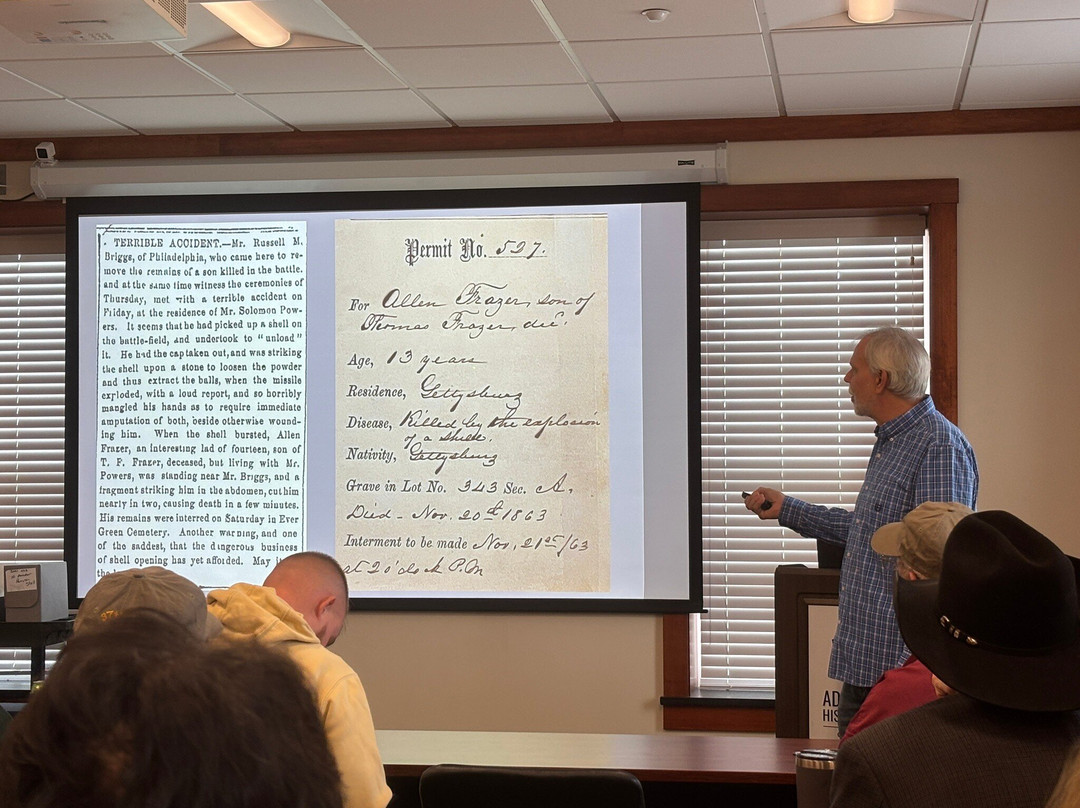 TERRIBLE ACCIDENT.—Mr. Russell M.
Briggs, of Philadelphia, who came here to re-
move the remains of a son killed in the battle.
and at the same time witness the ceremonies of
Thursday, met with a terrible accident on
Friday, at the residence of Mr. Solomon Pow-
ers. It seems that he had picked up a shell on
the battle-field, and undertook to "unload"
it. He had the cap taken out, and was striking
the shell upon a stone to loosen the powder
and thus extract the balls, when the missile
exploded, with a loud report, and so horribly
mangled his hands as to require immediate
amputation of both, beside otherwise wound-
ing him. When the shell bursted, Allen
Frazer, an interesting lad of fourteen, son of
T. F. Frazer, deceased, but living with Mr.
Powers, was standing near Mr. Briggs, and a
fragment striking him in the abdomen, cut him
nearly in two, causing death in a few minutes.
His remains were interred on Saturday in Ever
Green Cemetery. Another warning, and one
of the saddest, that the dangerous business
of shell opening has yet afforded. May
Permit No. 527.
For Allen Frazer, son of
Thomas Frazer, dec'.
Age, 13 years
Residence, Gettysburg
Disease, Killed by the explosion
of a shell.
Nativity, Gettysburg
Grave in Lot No. 343 Sec. A,
Died - Nov. 20th 1863
Interment to be made Nov, 21st/63
at 2 o'clock P.M
AD
HIS